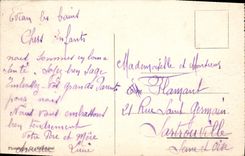 Evian les Bains
Chers Enfants
nous sommes en bonne
santé. Soyez bien sage
Embrassez vos grands Parents
pour nous
Nous vous embrassons
bien tendrement
votre Père et Mère
Mademoiselle et Monsieur
Flamant
21 Rue Saint Germain
Sartrouville
Seine et Oise